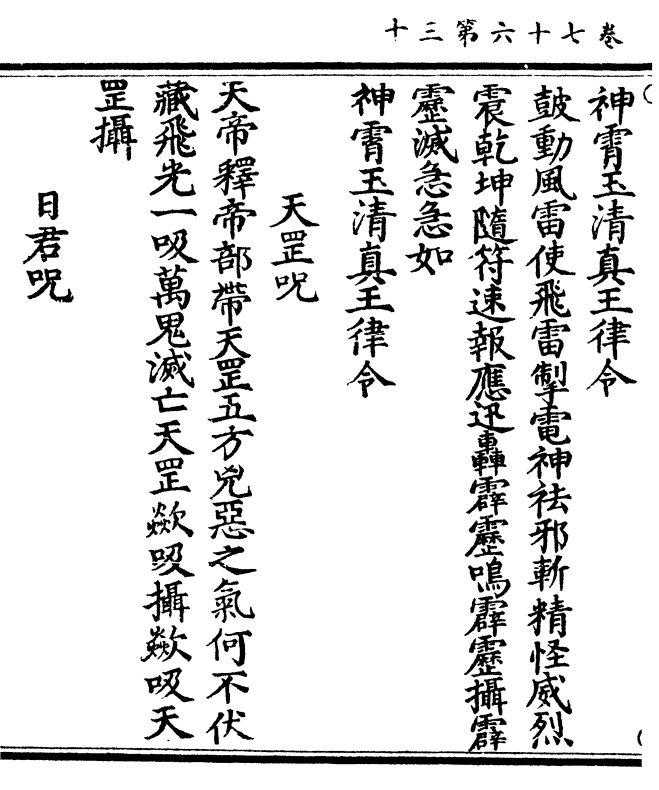 卷七十六第三十
神霄玉清真王律令
鼓動風雷使飛雷掣電神祛邪斬精怪威烈
震乾坤隨符速報應迅轟霹靂鳴霹靂攝霹
靂滅急急如
神霄玉清真王律令
天罡呪
天帝釋帝部帶天罡五方兇惡之氣何不伏
藏飛光一吸萬鬼滅亡天罡歘吸攝歘吸天
罡攝
日君呪